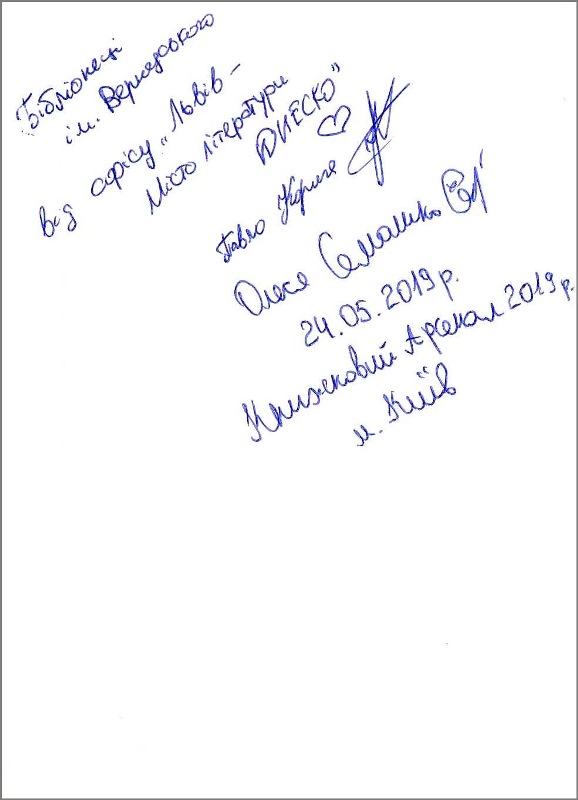 Бібліотеці
ім. Вернадського
від офісу „Львів –
Місто літератури
ЮНЕСКО"
Павло Коржа
Олеся Семашко
24.05.2019 р.
Книжковий Арсенал 2019 р.
м. Київ